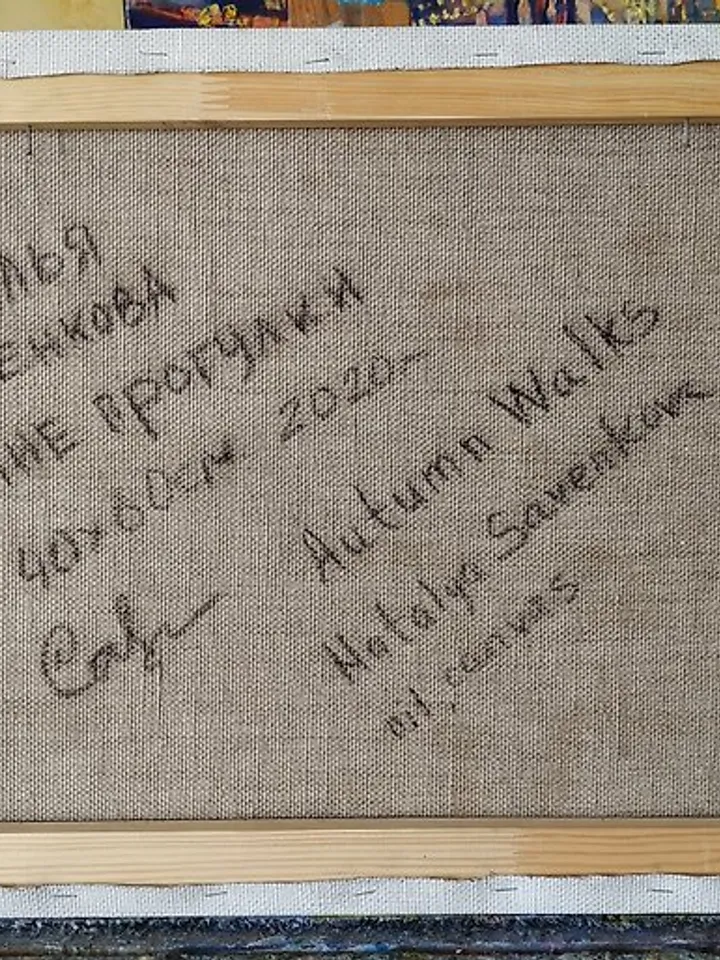 ЛЬЯ
ЕНКОВА
НИЕ ПРОГУЛКИ
40x60см 2020
Autumn Walks
Natalya Savenkova
oil, canvas